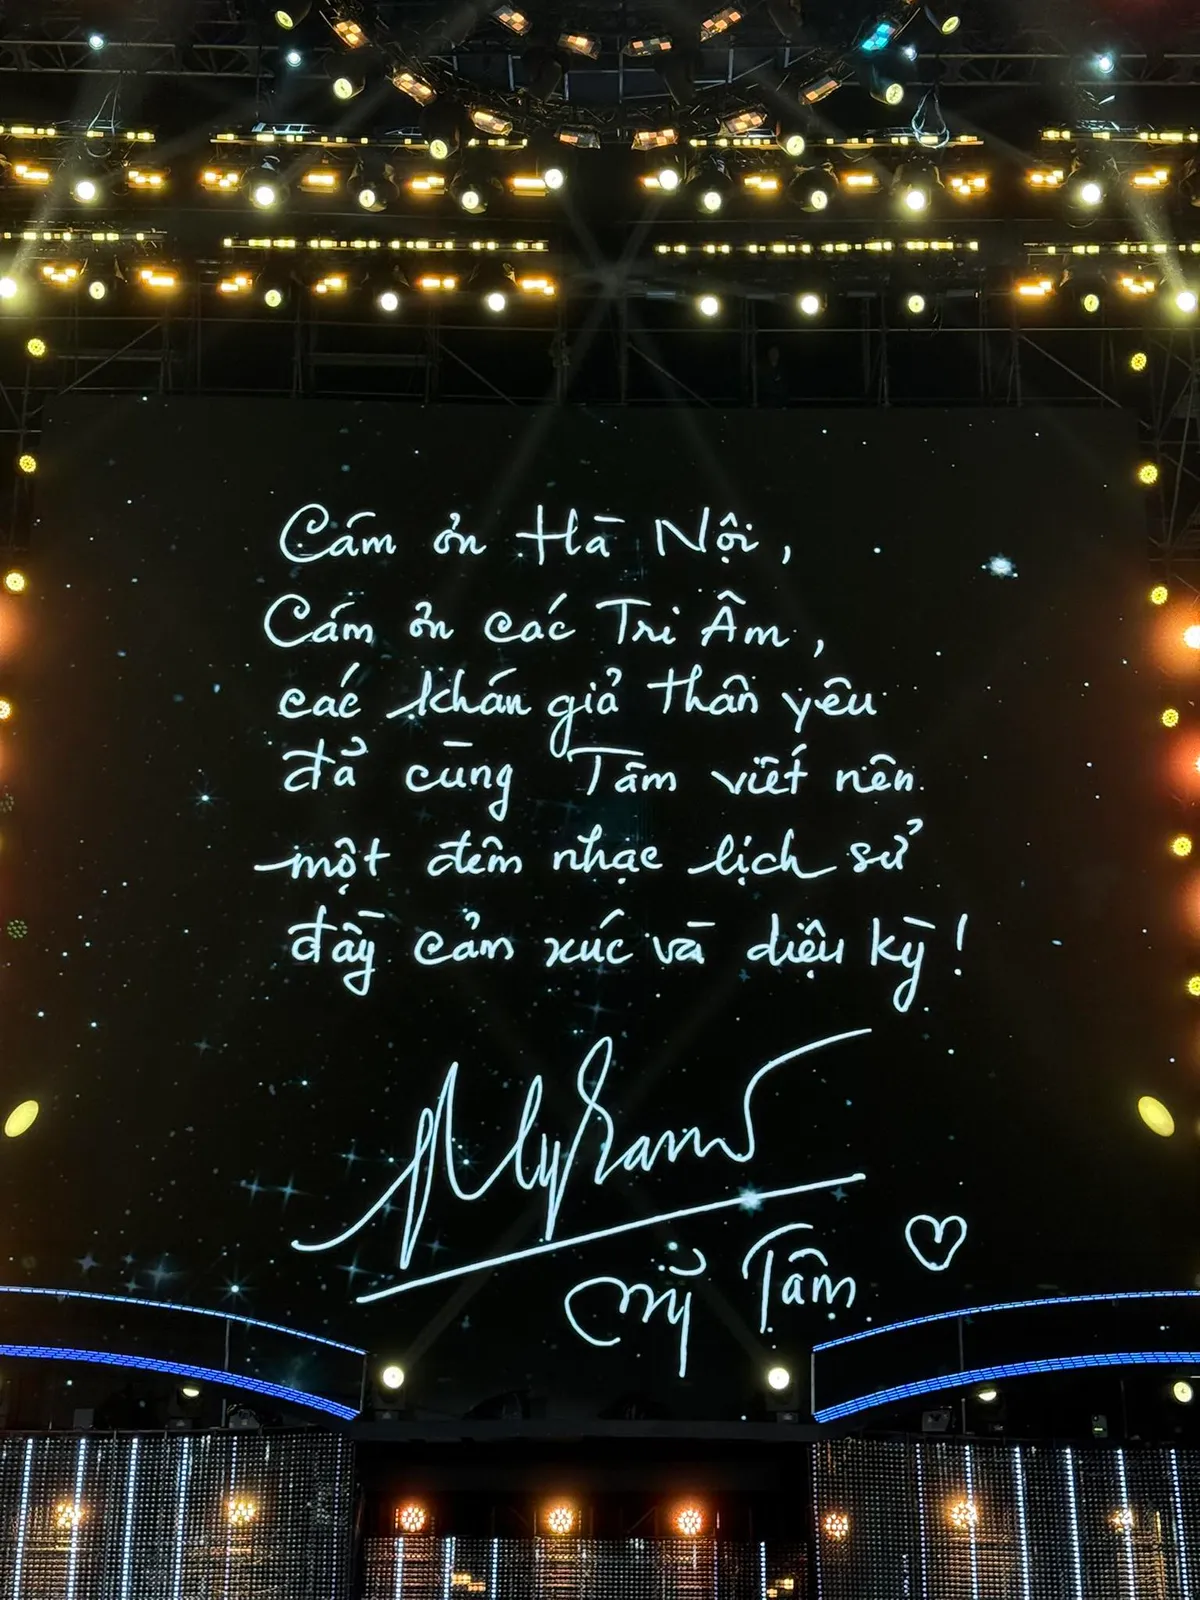 Cám ơn Hà Nội,
Cám ơn các Tri Âm,
các khán giả thân yêu
đã cùng Tâm viết nên
một đêm nhạc lịch sử
đầy cảm xúc và diệu kỳ!
MyTam
Mỹ Tâm